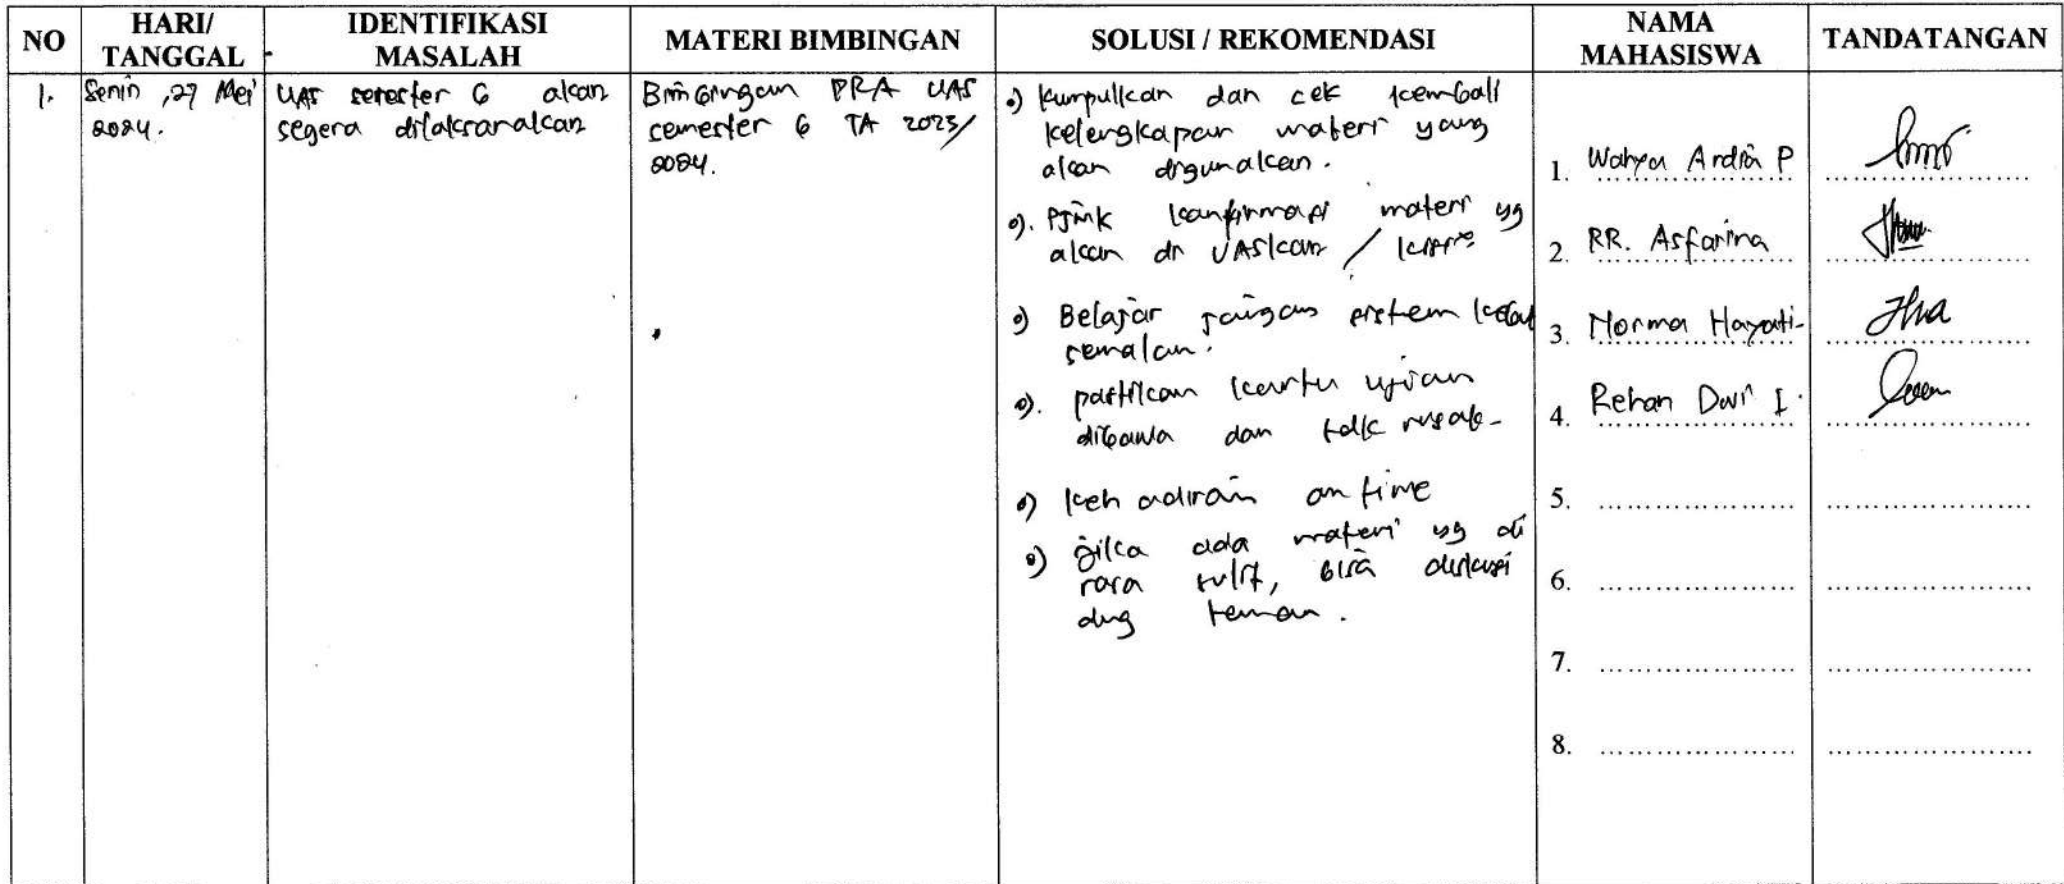 NO
HARI/
TANGGAL
IDENTIFIKASI
MASALAH
MATERI BIMBINGAN
SOLUSI / REKOMENDASI
NAMA
MAHASISWA
TANDATANGAN
1.
Senin, 27 Mei
2024.
UAS semester 6 akan
segera dilaksanakan
Bimbingan PRA UAS
semester 6 TA 2023/
2024.
•) Kumpulkan dan cek kembali
kelengkapan materi yang
akan digunakan.
•). PJMK konfirmasi materi yg
akan di UASkan /
•) Belajar jangan sistem kebut
semalam.
•). pastikan kartu ujian
dibawa dan tdk rusak
•) kehadiran on time
•) jika ada materi yg di
rasa sulit, bisa diskusi
dng teman.
1. Wahyu Ardia P
2. RR. Asfarina
3. Norma Hayati
4. Rehan Dwi I.
5.
6.
7.
8.